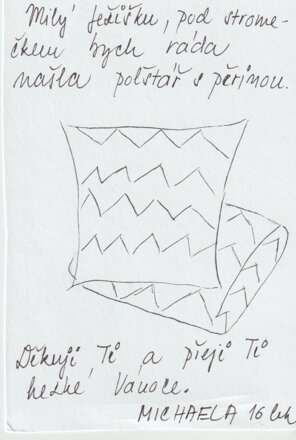 Milý Ježíšku, pod strome-
čkem bych ráda
našla polštář s peřinou.
Děkuji Ti a přeji Ti
hezké Vánoce.
MICHAELA 16 let